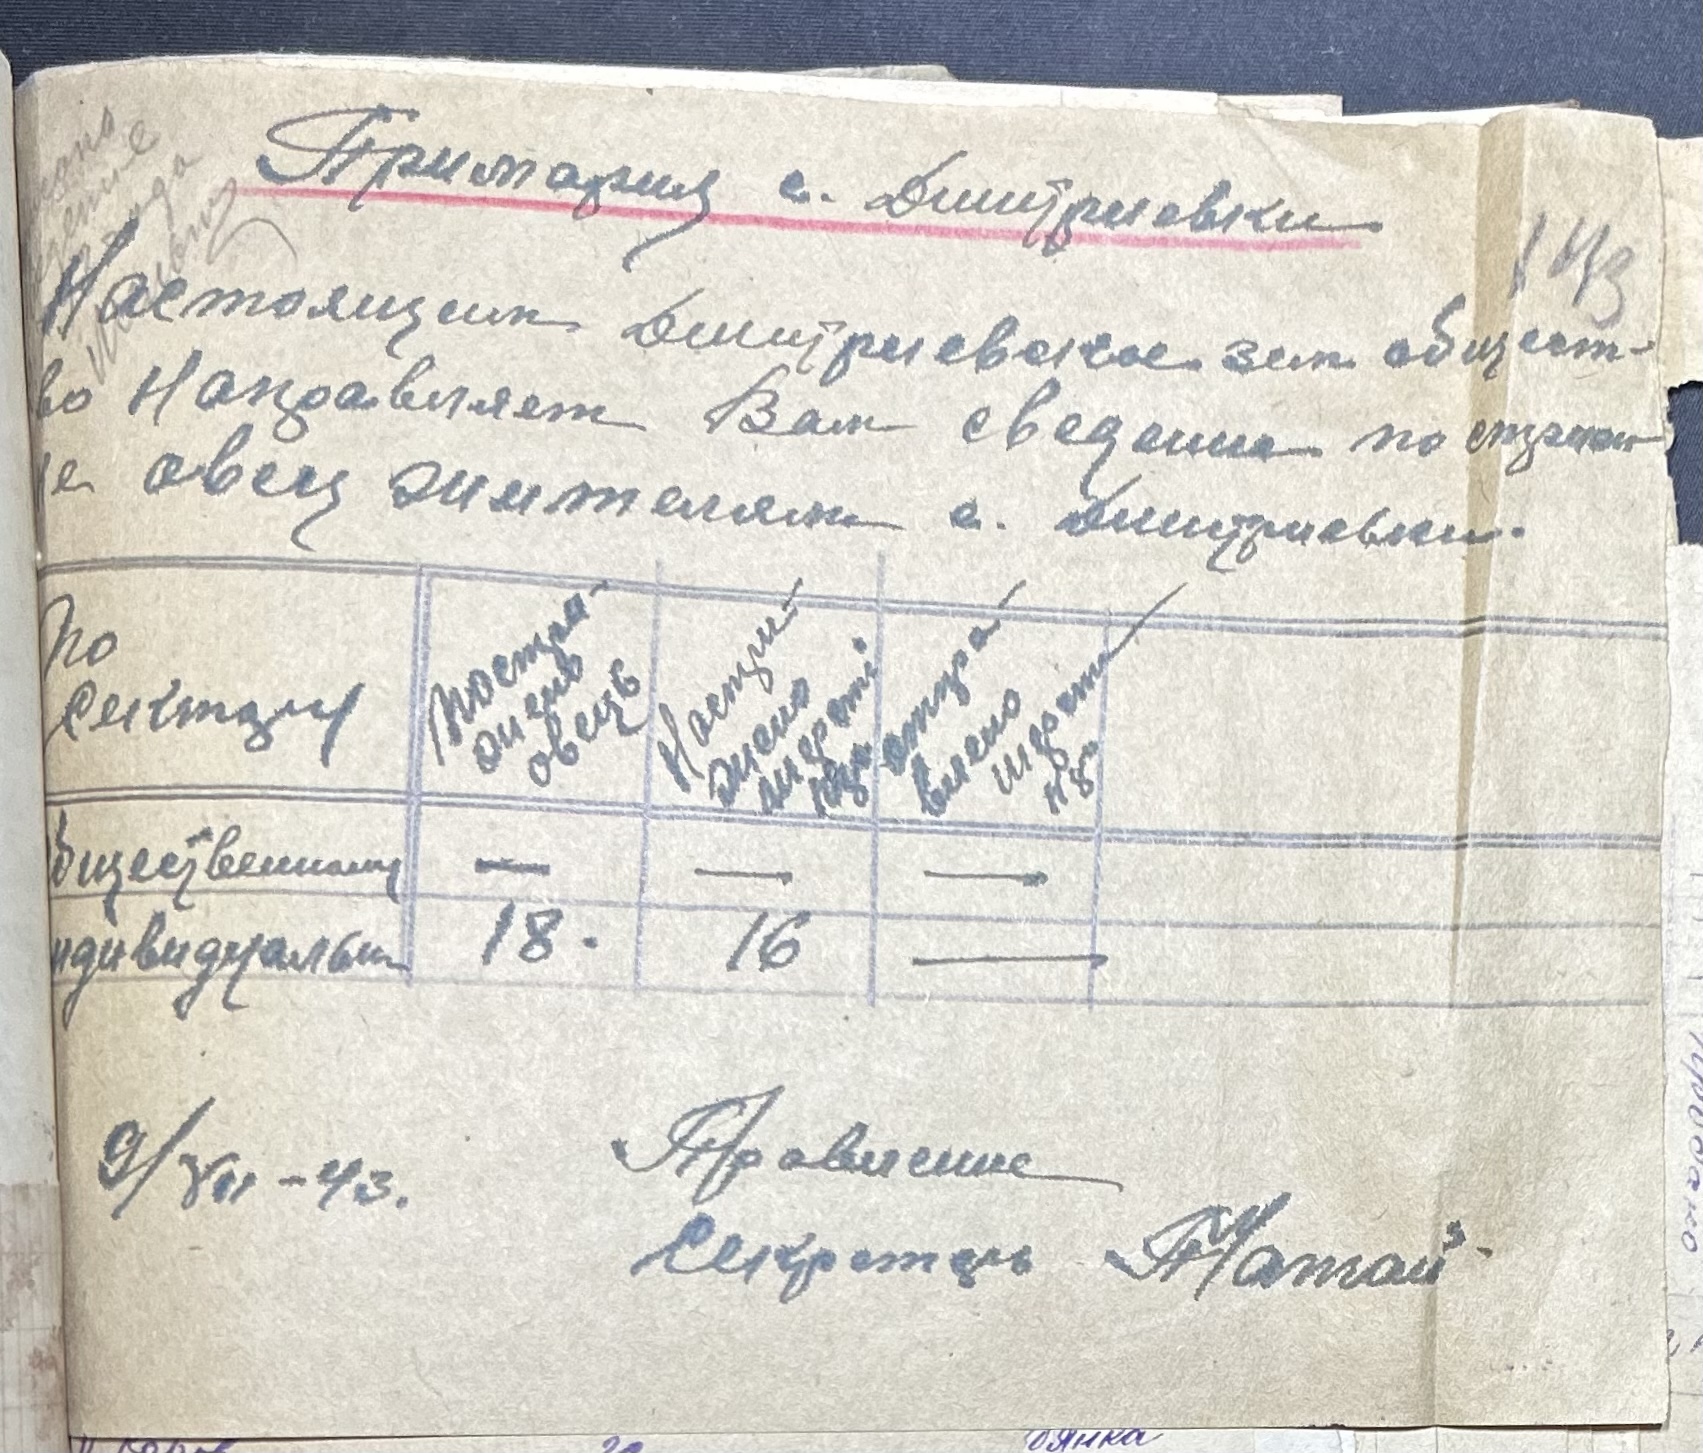 Примария с. Дмитриевки
143
Настоящим Дмитриевское зем. общест-
во Направляет Вам сведение по стрижк
е овец жителям с. Дмитриевки.
По
секторц
Постри-
жено
овець
Настри-
жено
шерсти
отпра-
влено
шерсти
общественному
—
—
—
ндивидуальн
18.
16
—
9/VII-43.
Правление
Секретарь